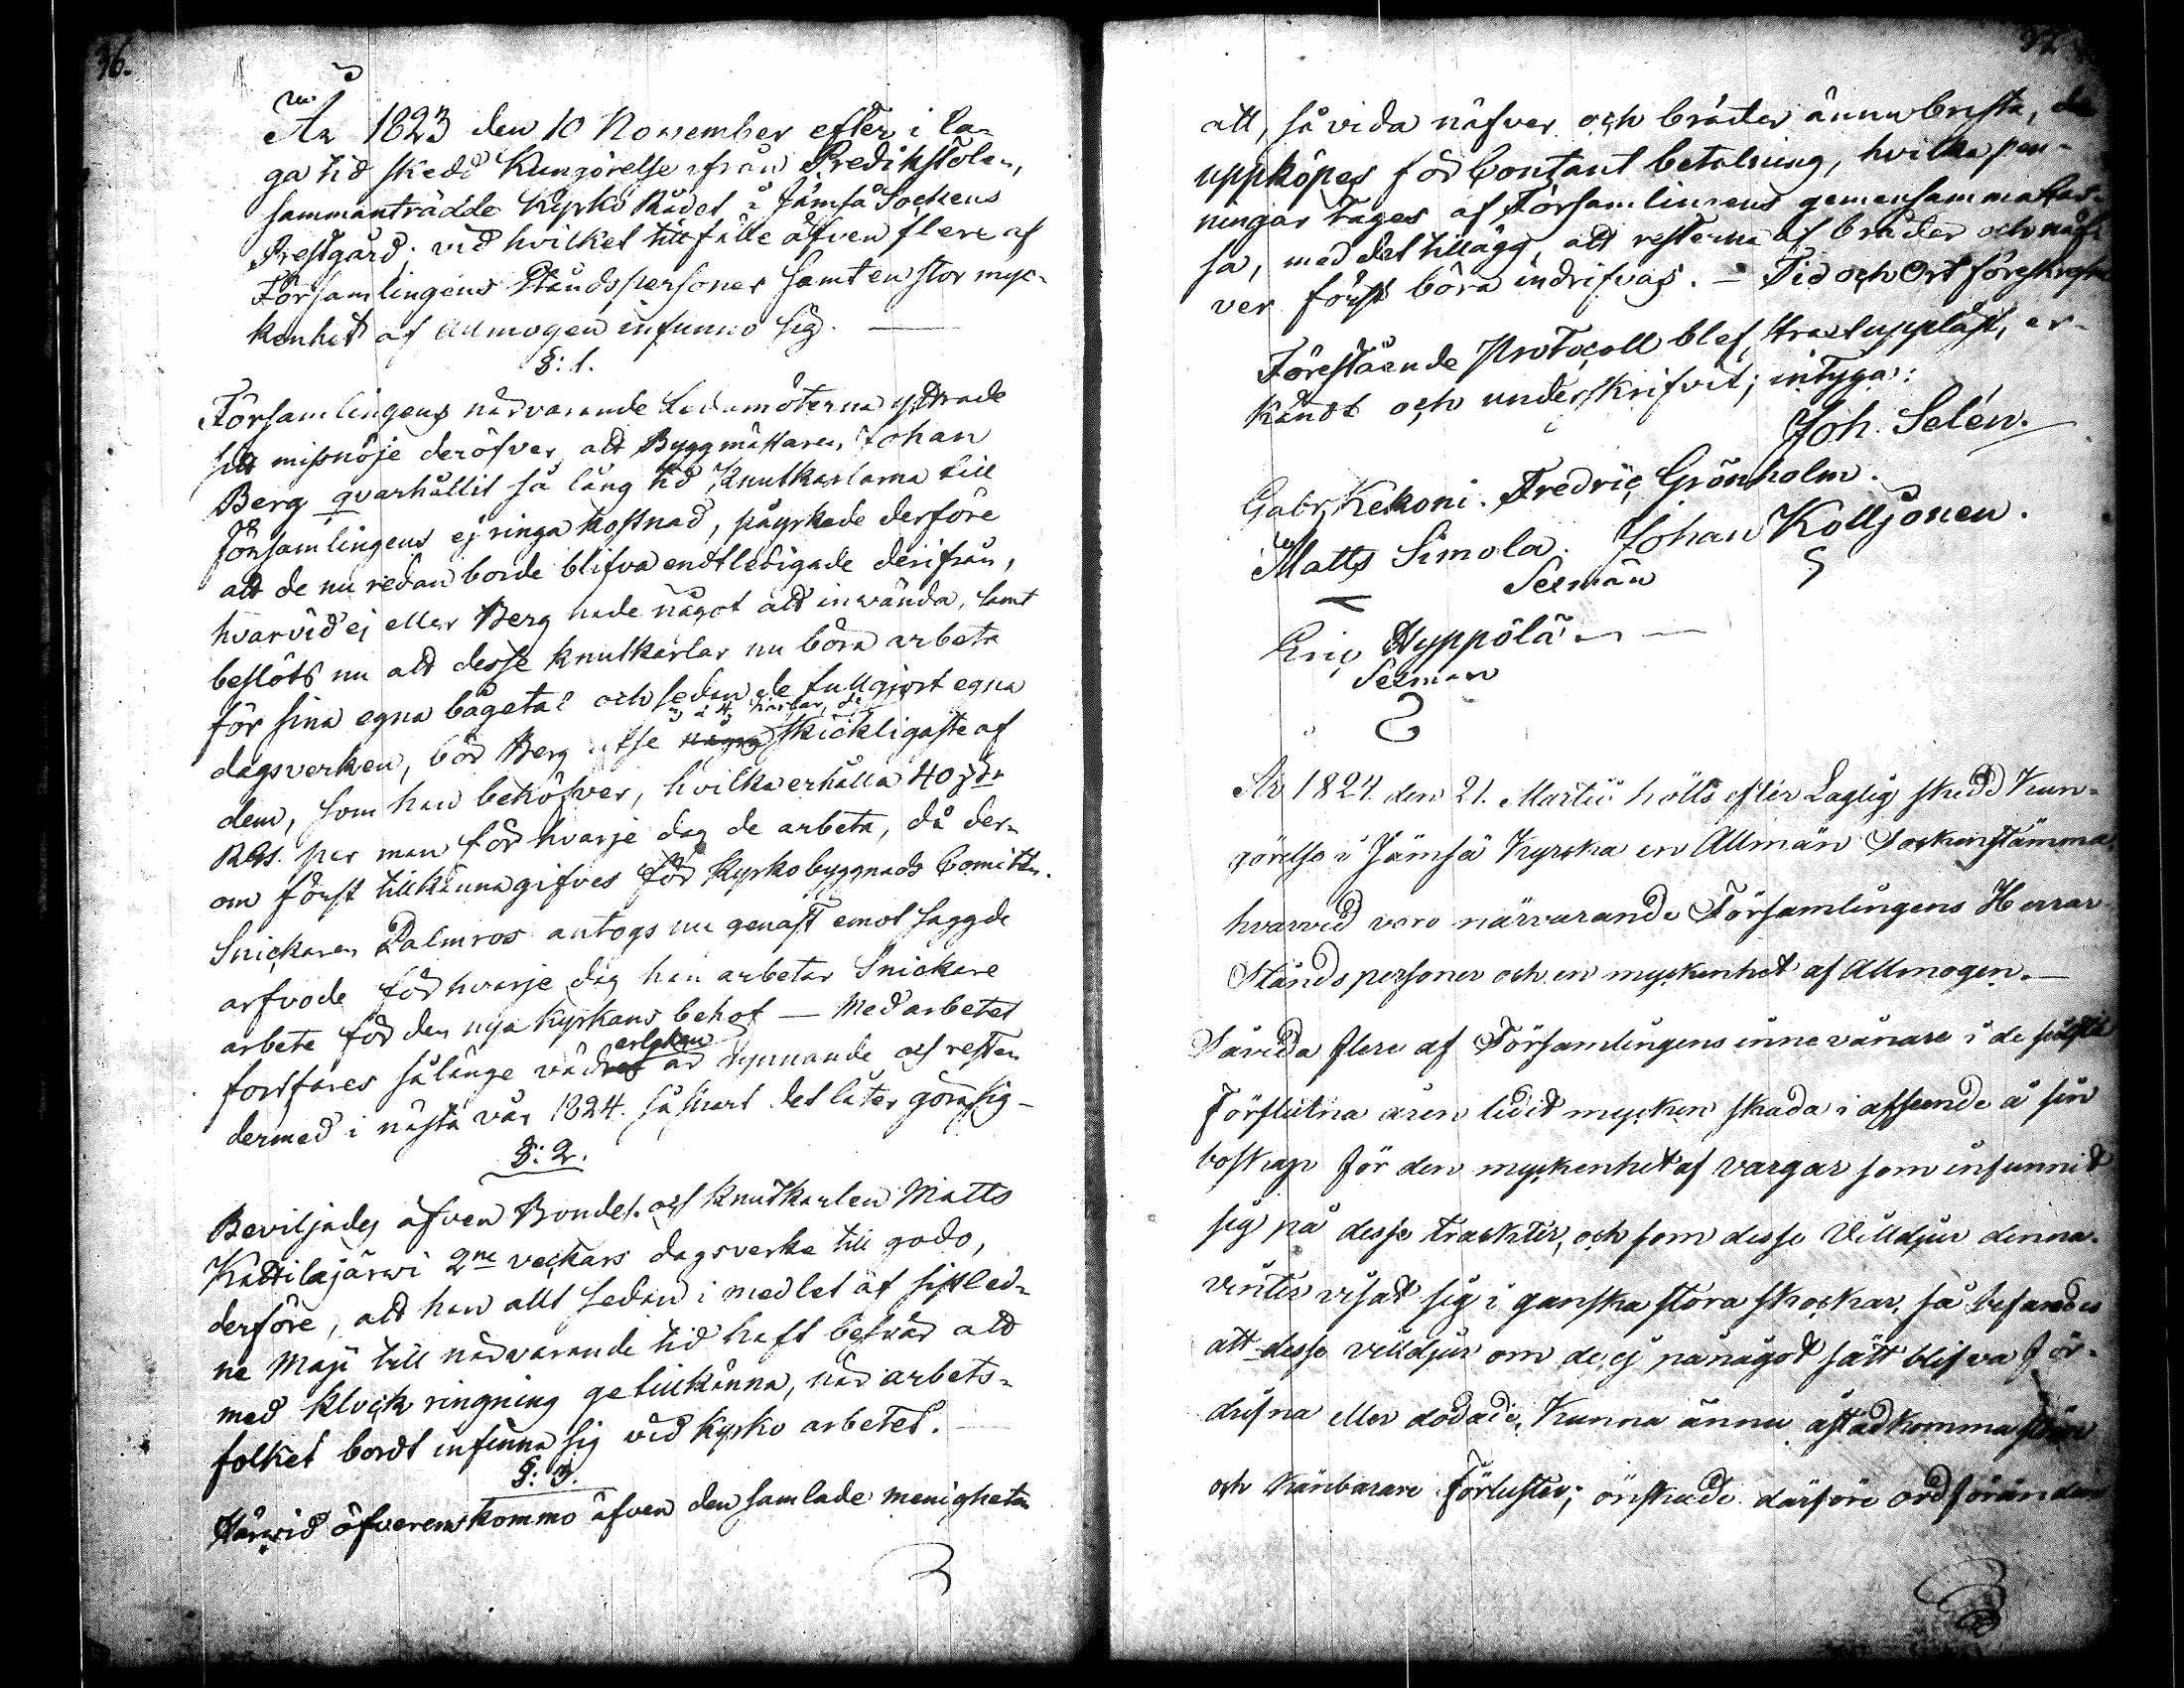 36.
År 1823 den 10 November efter i la-
ga tid skedd Kungörelse ifrån Predikstolen,
sammanträdde Kyrko Rådet i Jämsä Sockens
Prestgård; vid hvilket tillfälle äfven flere af
Församlingens Ståndspersoner samt en stor myc-
kenhet af Allmogen infunno sig. —
§: 1.
Församlingens närvarande Ledamöterna yttrade
sitt missnöje deröfver att Byggmästaren Johan
Berg qvarhållit så lång tid Knutkarlarna till
Församlingens ej ringa kostnad, påyrkade derföre
att de nu redan borde blifva endtledigade derifrån,
hvarvid ej eller Berg hade något att invända, samt
beslöts nu att desse knutkarlar nu böra arbeta
för sina egna bågetal och sedan de fullgjort egna
3 à 4 karlar, de
dagsverken, bör Berg utse några skickligaste af
dem, som han behöfver, hvilka erhålla 40
RGs. per man för hvarje dag de arbeta, då der-
om först tillkännagifves för Kyrkobyggnads Comitén.
Snickaren Palmros antogs nu genast emot saggde
arfvode för hvarje dag han arbetar Snickare
arbete för den nya Kyrkans behof — Med arbetet
erleken
fortfares sålänge vädret är gynnande och resten
dermed i nästa vår 1824. så snart det låter göra sig —
§: 2.
Beviljades äfven Bondes. och Knutkarlen Matts
Kattilajärvi 2ne veckors dagsverke till godo,
derföre, att han allt sedan i medlet af sistled-
ne Maji till närvarande tid haft besvär att
med Klock ringning ge tillkänna, när arbets-
folket bordt infinna sig vid Kyrko arbetet. —
§: 3.
Härvid öfverenskommo äfven den samlade menigheten
37.
att, så vida näfver och bräder ännu brista, de
uppköpes för Contant betalning, hvilka pen-
ningar tages af Församlingens gemensamma Cas-
sa, med det tillägg att resterna af bräder och näf-
ver först böra indrifvas. — Tid och Ort föreskrefne
Förestående Protocoll blef straxt uppläst, er-
kändt och underskrifvit; intygar:
Joh. Selén.
Gabr. Kekoni. Fredric Grönholm.
Matts Simola. Johan Kolljonen.
Sexman
Eric Hyppölä
Sexman
År 1824 den 21. Martii hölts efter Laglig skedd Kun-
görelse i Jämsä Kyrka en Allmän Sockenstämma,
hvarvid voro närvarande Församlingens Herrar
Ståndspersoner och en myckenhet af Allmogen. —
Såvida flere af Församlingens innevånare i de sistl.
Förflutna åren lidit mycken skada i afseende å sin
boskap för den myckenhet af vargar som infunnit
sig på desse trackter, och som desse Villdjur denna
vinter visat sig i ganska stora skockar, så befarades
att desse villdjur om de ej på något sätt blifva För-
drifna eller dödade, Kunna ännu åstadkomma större
och kännbarare Förluster; önskade därföre ordföranden